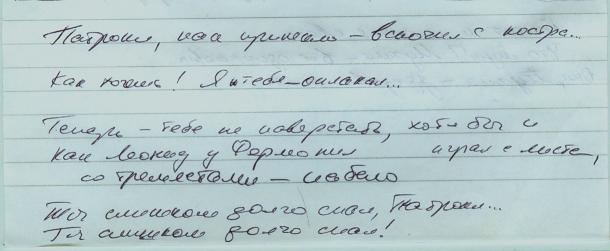 Патрокл, – вскочил с костра...
Как хочешь! Я тебя – оплакал...
Теперь – тебе не наверстать, хотя бы и
как Леонид у Фермопил играл с листа,
со тремястами – набело
Ты слишком долго спал, Патрокл...
Ты слишком долго спал!